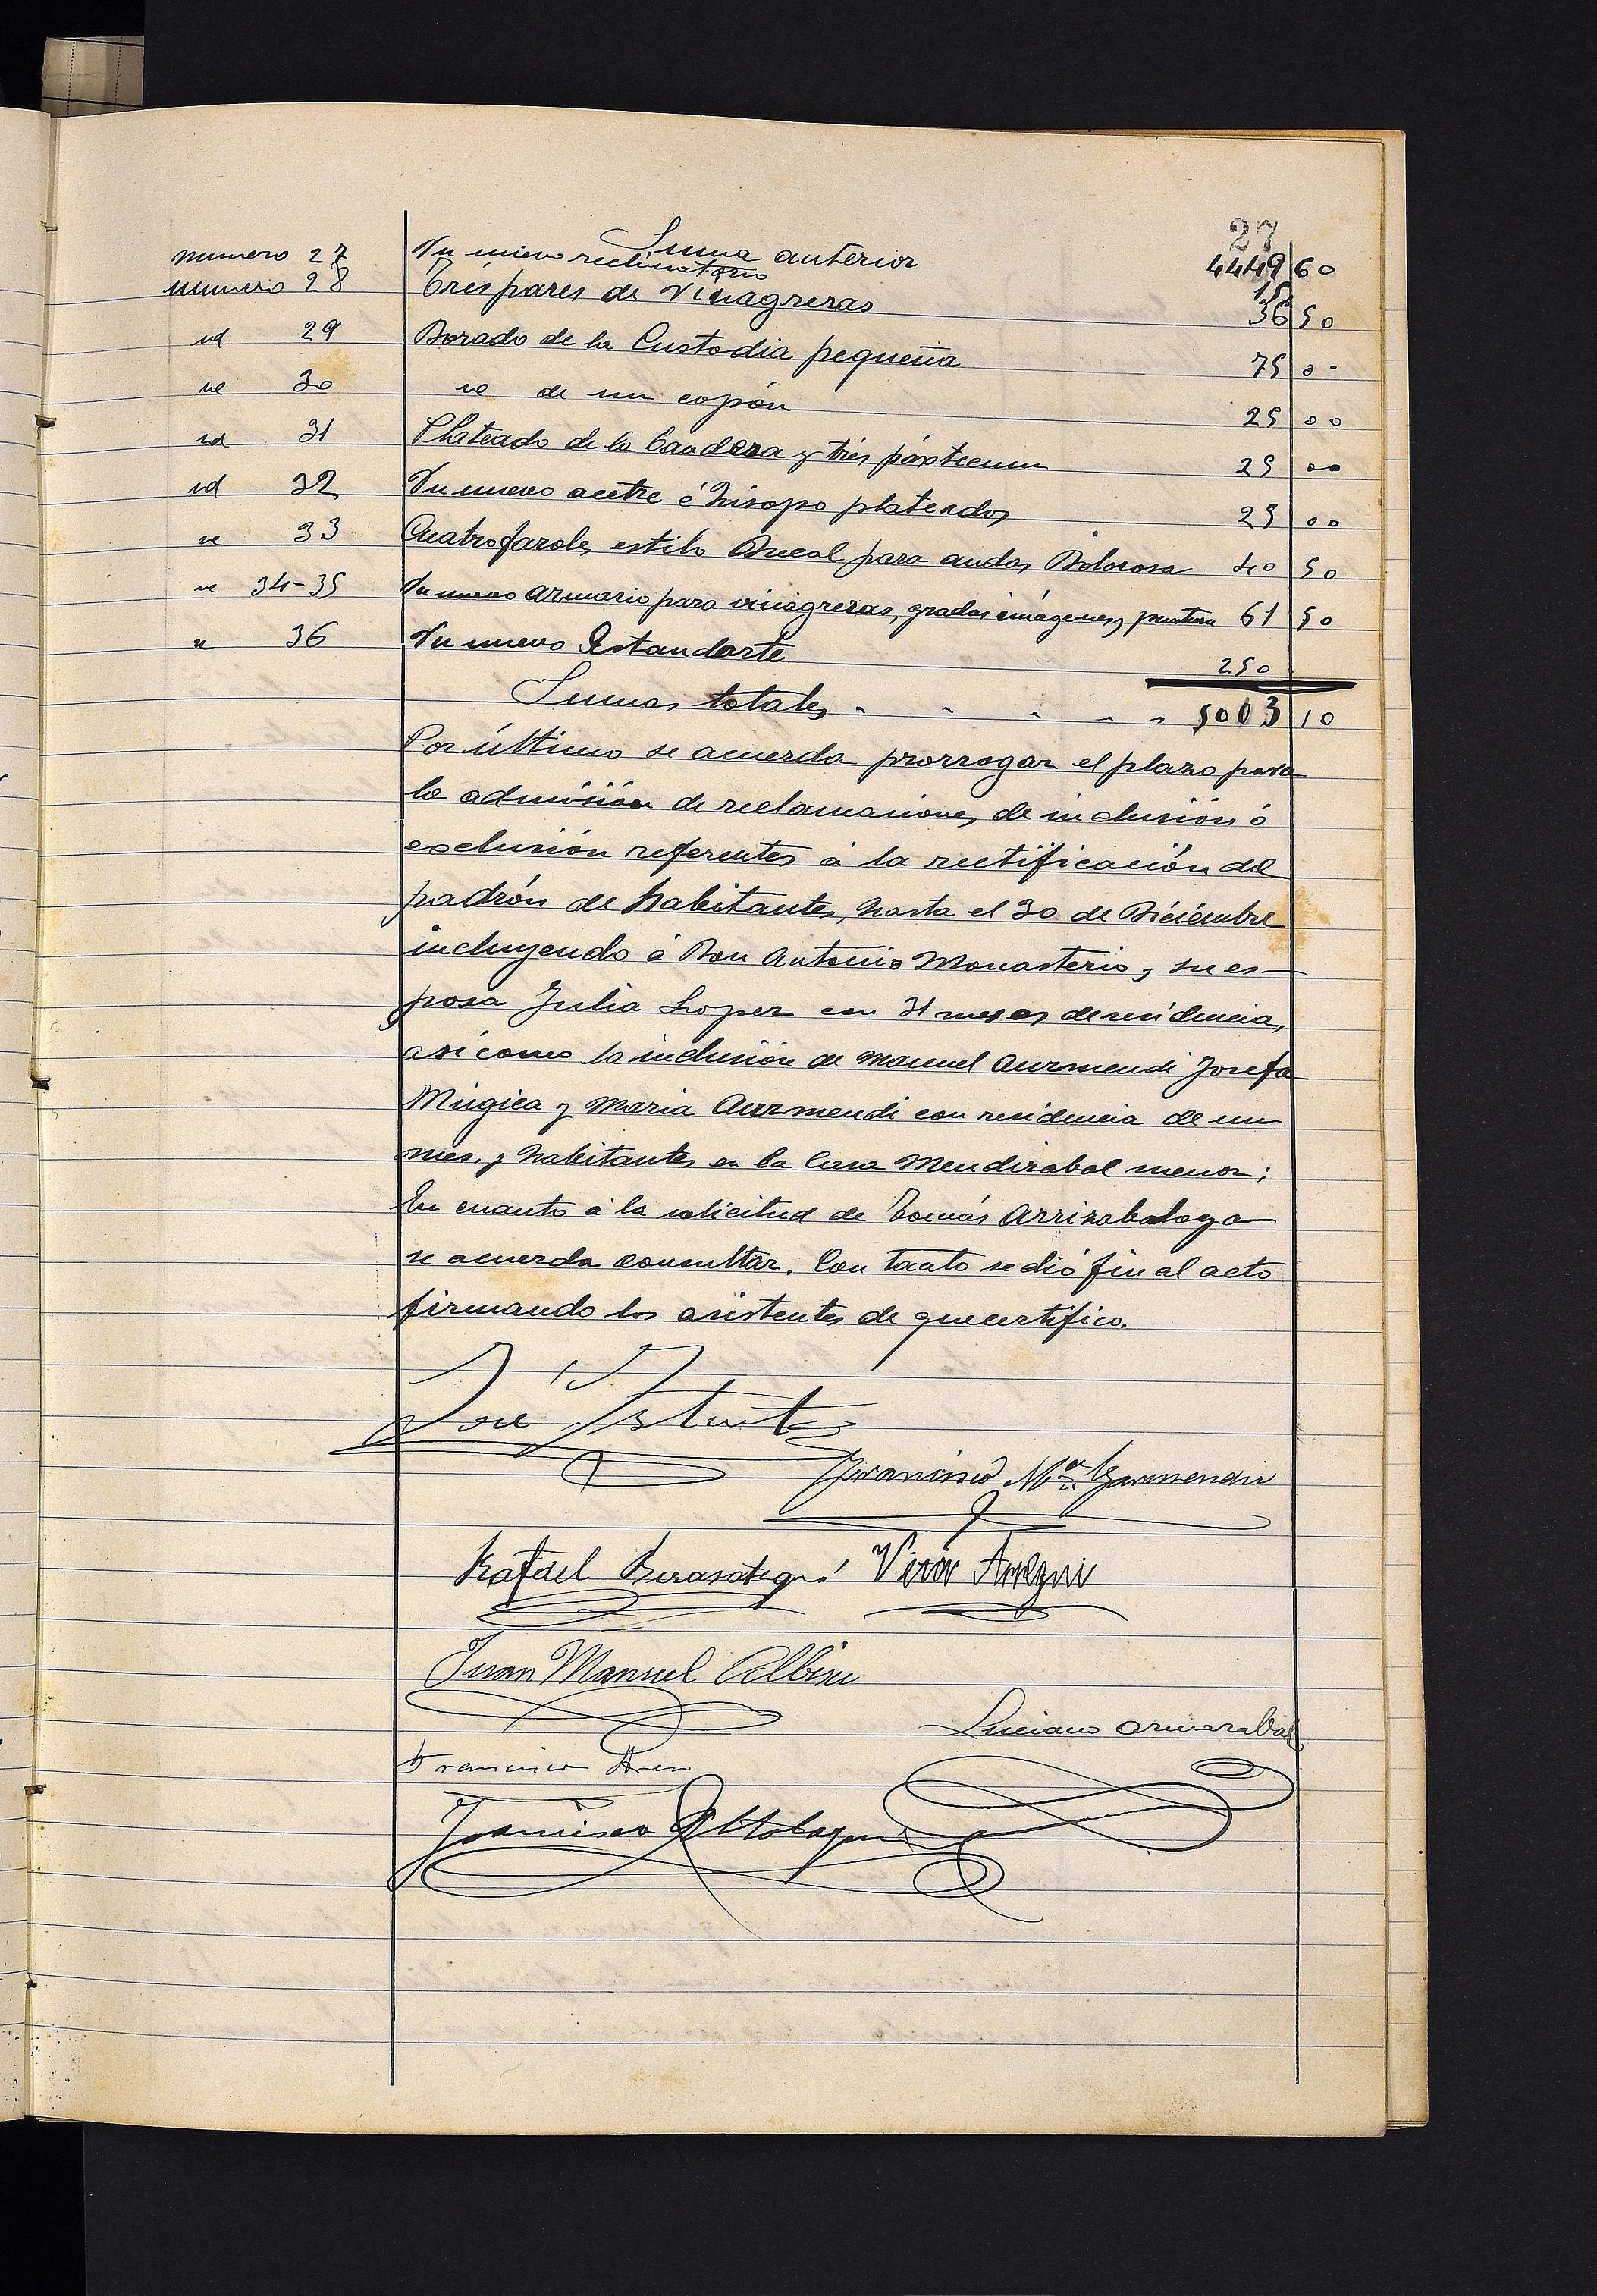 27
Suma anterior 4449 60
numero 27 Un nuevo reclinatorio 15
numero 28 Trés pares de Vinagreras 36 50
id 29 Dorado de la Custodia pequeña 75 00
id 30 id de un copón 25 00
id 31 Plateado de la bandeza y trés 25 00
id 32 Un nuevo acetre é hisopo plateados 25 00
id 33 Cuatro faroles estilo para andas Dolorosa 40 50
id 34-35 Un nuevo armario para vinagreras, gradas imágenes y pintura 61 50
id 36 Un nuevo Estandarte 250
Sumas totales - - - - - 5003 10
Por último se acuerda prorrogar el plazo para
la admisión de reclamaciones de inclusión ó
exclusión referentes á la rectificación del
padrón de habitantes, hasta el 30 de Diciembre
incluyendo á Don Antonio Monasterio y su es-
posa Julia Lopez con 31 meses de residencia,
asi como la inclusión de Manuel Aurmendi Josefa
Múgica y Maria Aurmendi con residencia de un
mes. y habitantes en la Casa Mendizabal menor;
En cuanto á la solicitud de Tomás Arrizabalaga
se acuerda consultar. Con tanto se dió fin al acto
firmando los asistentes de que certifico.
José
Francisco Mª Garmendia
Rafael Berasategui Victor
Juan Manuel Albisu
Luciano Ormazabal
Francisco
Francisco Altolaguirre